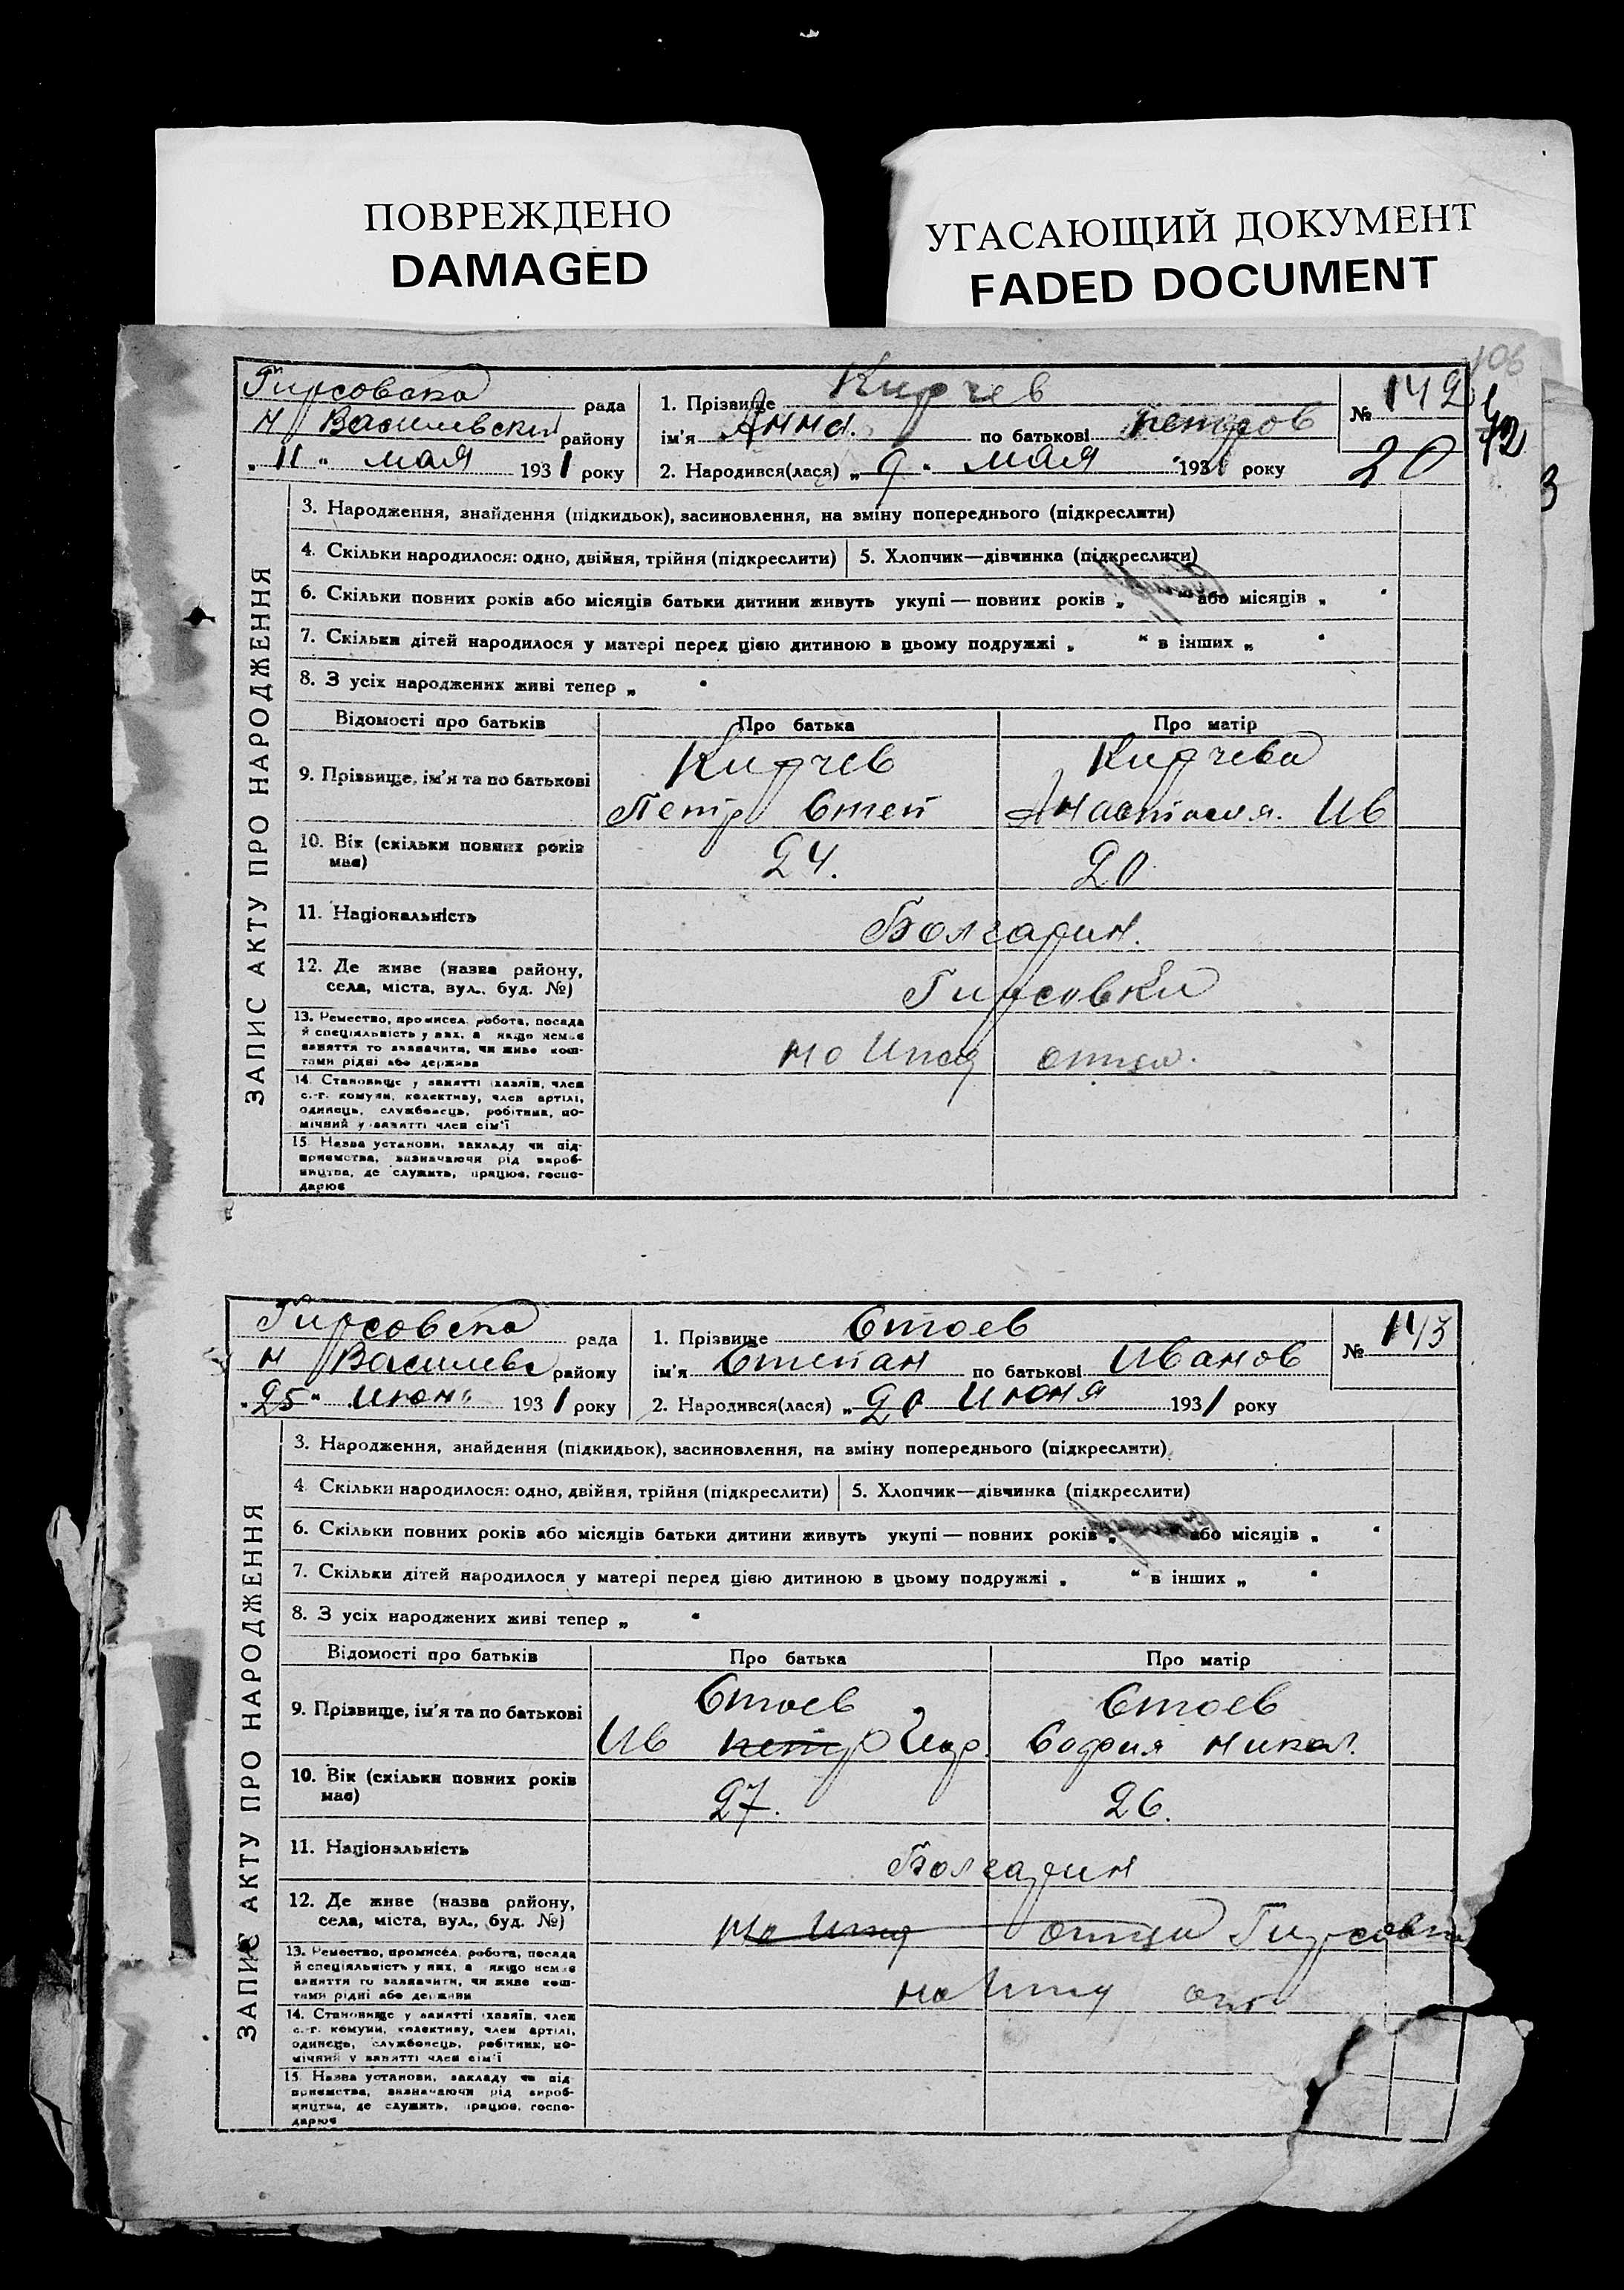 ПОВРЕЖДЕНО
DAMAGED
УГАСАЮЩИЙ ДОКУМЕНТ
FADED DOCUMENT
106
ЗАПИС АКТУ ПРО НАРОДЖЕННЯ
Гирсовска рада
Н Василевский району
„11“ мая 1931 року
1. Прізвище Кирчев
ім'я Анна. по батькові петров
2. Народився(лася) „9“ мая 1931 року
№ 142
20
3. Народження, знайдення (підкидьок), засиновлення, на зміну попереднього (підкреслити)
4. Скільки народилося: одно, двійня, трійня (підкреслити) 5. Хлопчик—дівчинка (підкреслити)
6. Скільки повних років або місяців батьки дитини живуть укупі — повних років „ “ або місяців „ “
7. Скільки дітей народилося у матері перед цією дитиною в цьому подружжі „ “ в інших „ “
8. З усіх народжених живі тепер „ “
Відомості про батьків Про батька Про матір
9. Прізвище, ім'я та по батькові
Кирчев Кирчева
Петр Степ Анастасия. Ив
10. Вік (скільки повних років має) 24. 20
11. Національність Болгарин.
12. Де живе (назва району, села, міста, вул., буд. №) Гирсовки
13. Ремество, промисел, робота, посада й спеціяльність у них, а якщо немає заняття то зазначити, чи живе коштами рідні або держави
на ижд отца.
14. Становище у занятті (хазяїн, член с.-г. комуни, колективу, член артілі, одинець, службовець, робітник, помічний у занятті член сім'ї
15. Назва установи, закладу чи підприємства, зазначаючи рід виробництва, де служить, працює, господарює
ЗАПИС АКТУ ПРО НАРОДЖЕННЯ
Гирсовска рада
Н Василевс району
„25“ Июня 1931 року
1. Прізвище Стоев
ім'я Степан по батькові Иванов
2. Народився(лася) „20 Июня 1931 року
№ 143
3. Народження, знайдення (підкидьок), засиновлення, на зміну попереднього (підкреслити)
4. Скільки народилося: одно, двійня, трійня (підкреслити) 5. Хлопчик—дівчинка (підкреслити)
6. Скільки повних років або місяців батьки дитини живуть укупі — повних років „ “ або місяців „ “
7. Скільки дітей народилося у матері перед цією дитиною в цьому подружжі „ “ в інших „ “
8. З усіх народжених живі тепер „ “
Відомості про батьків Про батька Про матір
9. Прізвище, ім'я та по батькові
Стоев Стоев
Ив петр София Никол.
10. Вік (скільки повних років має) 27. 26.
11. Національність Болгарин
12. Де живе (назва району, села, міста, вул., буд. №) на ижд отца Гирсовка
13. Ремество, промисел, робота, посада й спеціяльність у них, а якщо немає заняття то зазначити, чи живе коштами рідні або держави
на ижд отц
14. Становище у занятті (хазяїн, член с.-г. комуни, колективу, член артілі, одинець, службовець, робітник, помічний у занятті член сім'ї
15. Назва установи, закладу чи підприємства, зазначаючи рід виробництва, де служить, працює, господарює